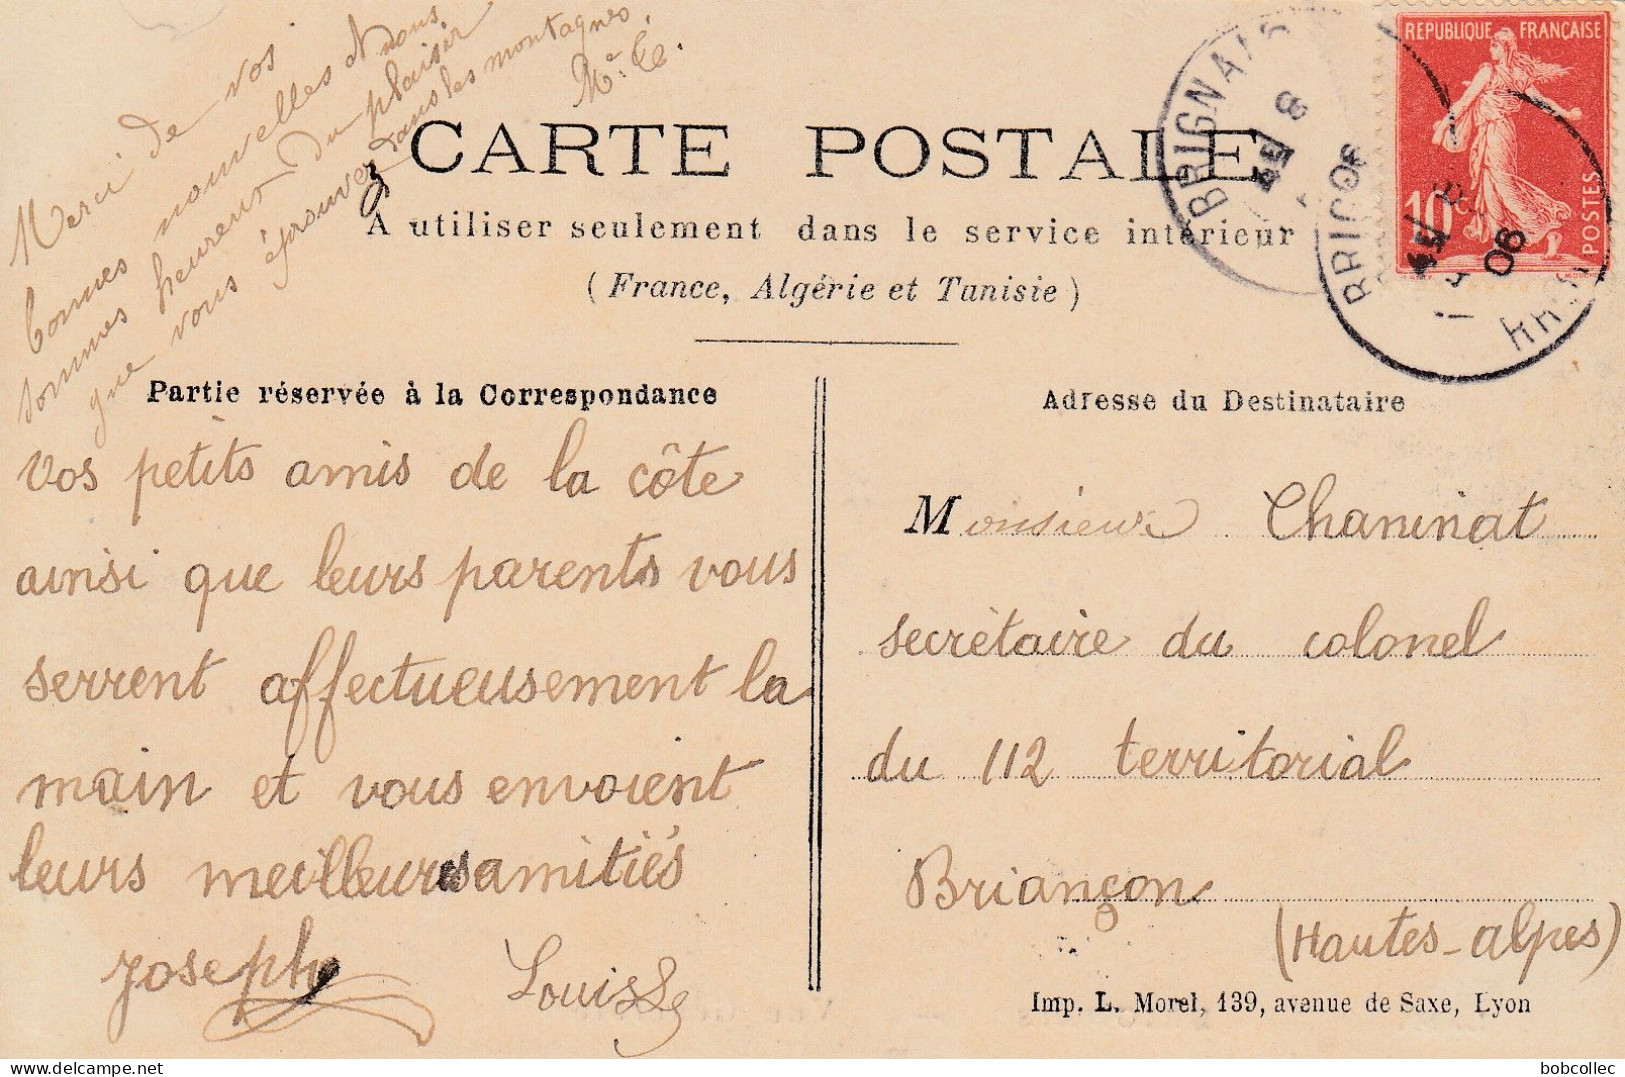 Merci de vos
bonnes nouvelles et nous
sommes heureux du plaisir
que vous éprouvez dans les montagnes.
REPUBLIQUE FRANÇAISE
10c
POSTES
BRIGNAIS
8
06
BRIG
06
CARTE POSTALE
A utiliser seulement dans le service intérieur
(France, Algérie et Tunisie)
Partie réservée à la Correspondance
Vos petits amis de la côte
ainsi que leurs parents vous
serrent affectueusement la
main et vous envoient
leurs meilleurs amitiés
Joseph Louis
Adresse du Destinataire
Monsieur Chaninat
secrètaire du colonel
du 112 territorial
Briançon
(Hautes-alpes)
Imp. L. Morel, 139, avenue de Saxe, Lyon
delcampe.net
bobcollec